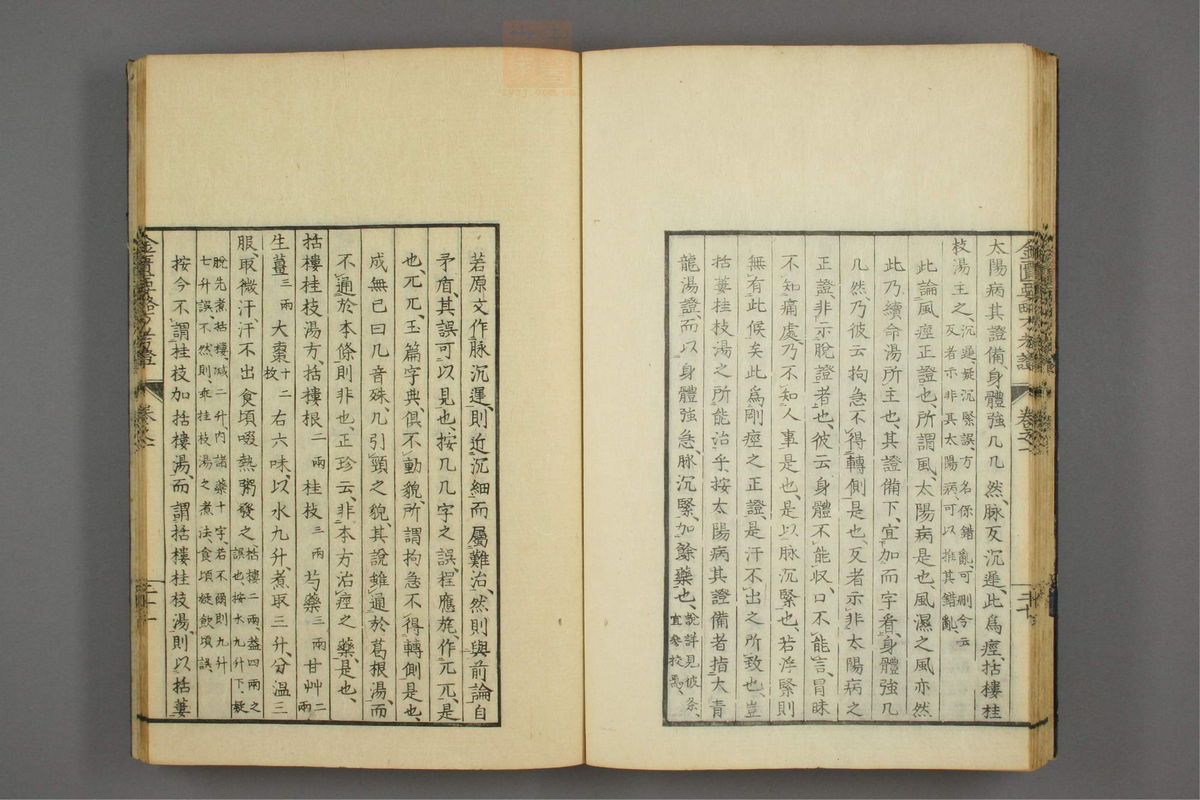 太陽病其證備、身體強几几然、脉反沉遲、此爲痙、括樓桂
枝湯主之、沉遲、疑沉緊誤、方名係錯亂、可刪、今云
反者示非其太陽病、可以推其錯亂、
此論風痙正證也、所謂風、太陽病是也、風濕之風亦然
此乃續命湯所主也、其證備下、宜加而字看、身體強几
几然、乃彼云拘急不得轉側是也、反者示非太陽病之
正證、非示脫證者也、彼云身體不能收、口不能言、冒昧
不知痛處、乃不知人事是也、是以脉沉緊也、若浮緊則
無有此候矣、此爲剛痙之正證、是汗不出之所致也、豈
括蔞桂枝湯之所能治乎、按太陽病其證備者、指大青
龍湯證、而以身體強急、脉沉緊、加餘藥也、說詳見彼条、
宜參按焉、
若原文作脉沉遲、則近沉細而屬難治、然則與前論自
矛盾、其誤可以見也、按几几字之誤、程應旄、作兀兀、是
也、兀兀、玉篇字典、俱不動貌、所謂拘急不得轉側是也、
成無已曰几音殊、几引頸之貌、其說雖通於葛根湯、而
不通於本條、則非也、正珍云、非本方治痙之藥、是也、
括樓桂枝湯方、括樓根二兩 桂枝三兩 芍藥三兩 甘艸二兩
生薑三兩 大棗十二枚 右六味、以水九升、煮取三升、分溫三
服、取微汗、汗不出、食頃啜熱粥發之、括樓二兩、蓋四兩之
誤也、按水九升下、疑
脫先煮括樓、減二升、內諸藥十字、若不爾則九升
七升誤、不然則乖桂枝湯之煮法、食頃、疑飲頃誤、
按今不謂桂枝加括樓湯、而謂括樓桂枝湯、則以括蔞
金匱要略方考證
卷之一